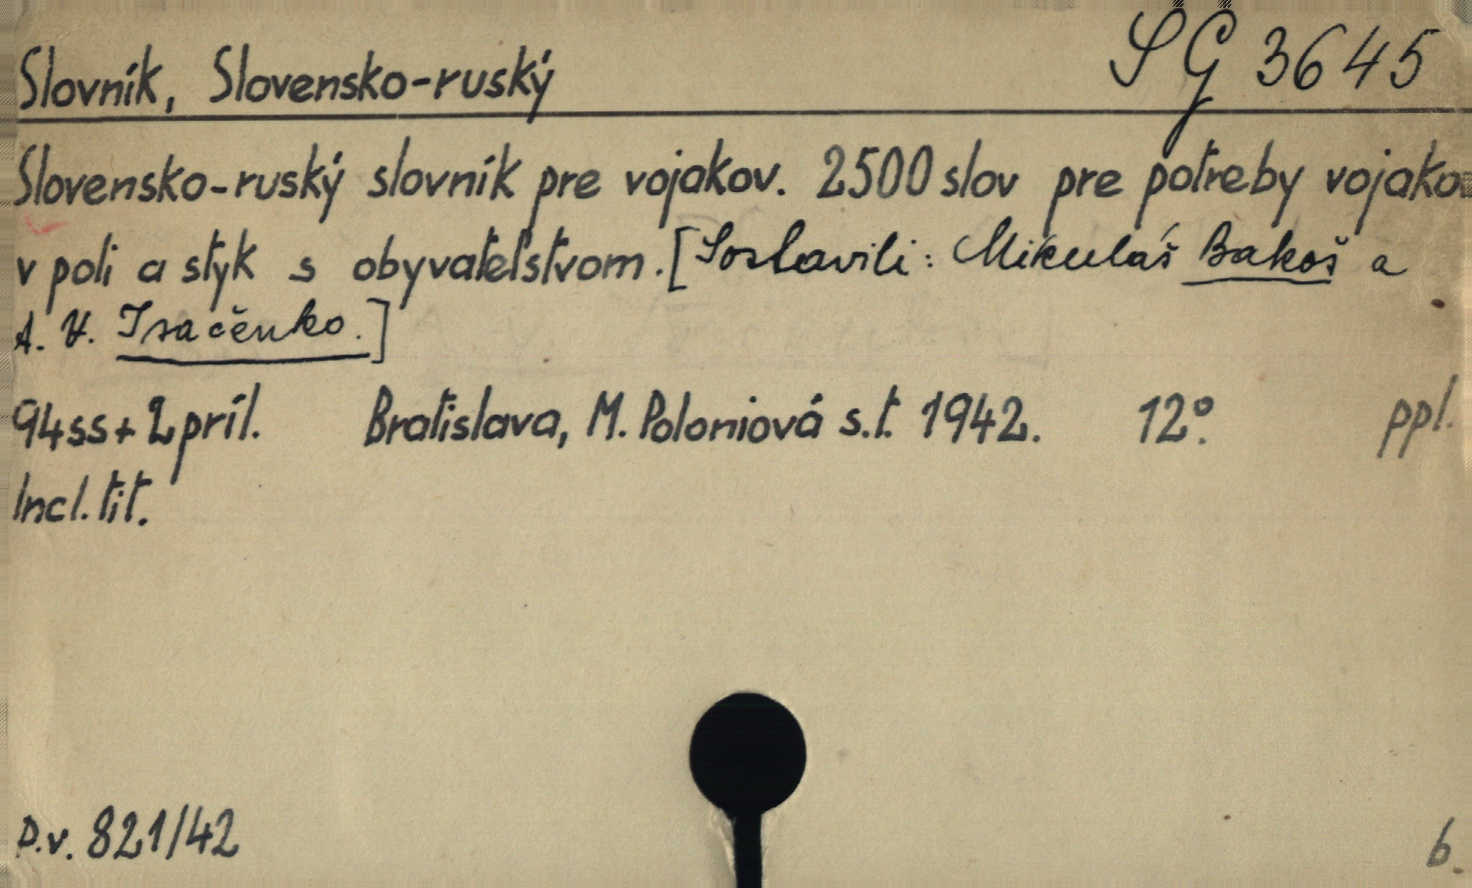 Slovník, Slovensko-ruský SG 3645
Slovensko-ruský slovník pre vojakov. 2500 slov pre potreby vojakov
v poli a styk s obyvateľstvom. [Sostavili: Mikuláš Bakoš a
A. V. Isačenko.]
94ss+2príl. Bratislava, M. Poloniová s.t. 1942. 12°. ppl.
Incl. tit.
D.v. 821/42 b.